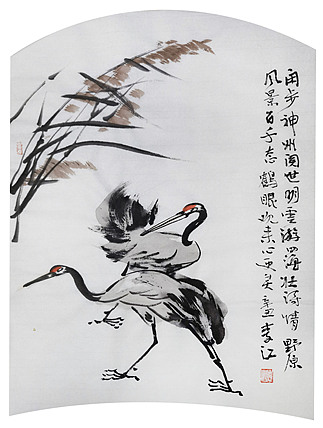 步神州阅世明云游四海壮诗情 野原
风景百千态 鹤眼观来心更美 李江